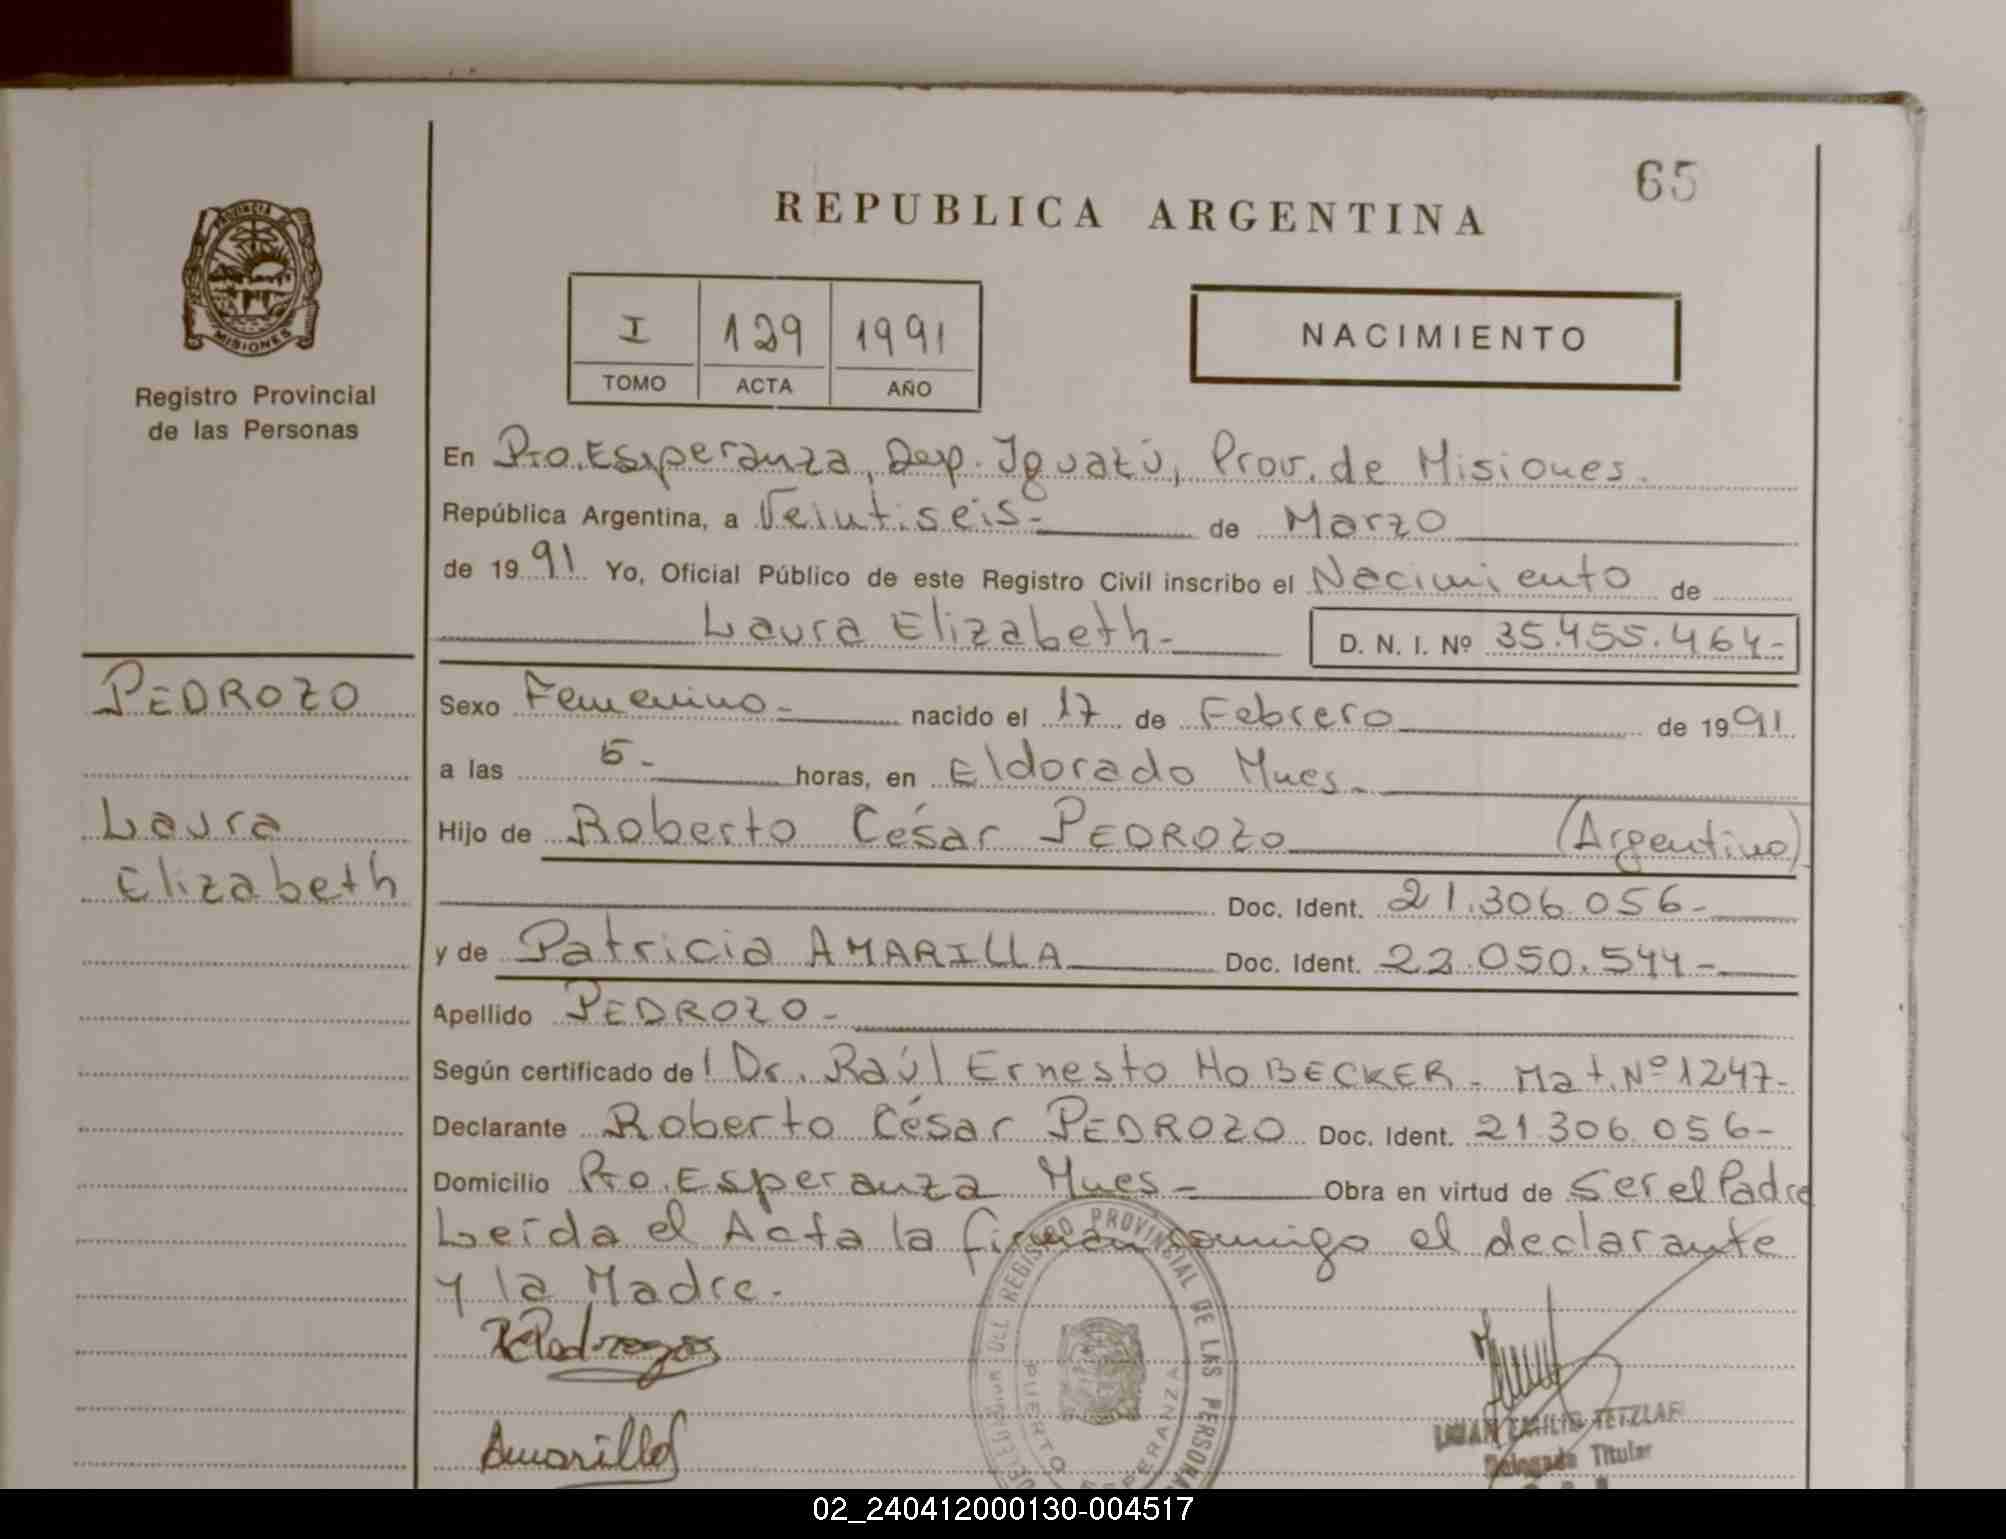 65
REPUBLICA ARGENTINA
PROVINCIA
MISIONES
Registro Provincial
de las Personas
I 129 1991
TOMO ACTA AÑO
NACIMIENTO
En Pto. Esperanza, Dep. Iguazú, Prov. de Misiones.
República Argentina, a Veintiseis - de Marzo
de 1991 Yo, Oficial Público de este Registro Civil inscribo el Nacimiento de
Laura Elizabeth - D. N. I. Nº 35.455.464-
PEDROZO
Laura
Elizabeth
Sexo Femenino - nacido el 17 de Febrero de 1991
a las 5 - horas, en Eldorado Mnes -
Hijo de Roberto César PEDROZO (Argentino)
Doc. Ident. 21.306.056-
y de Patricia AMARILLA Doc. Ident. 22.050.544-
Apellido PEDROZO -
Según certificado del Dr. Raúl Ernesto HOBECKER - Mat. Nº 1247-
Declarante Roberto César PEDROZO Doc. Ident. 21.306.056-
Domicilio Pto. Esperanza Mnes - Obra en virtud de Ser el Padre
Leída el Acta la firman conmigo el declarante
y la Madre.
DELEGACION DEL REGISTRO PROVINCIAL DE LAS PERSONA
PUERTO ESPERANZA
RcPedrozo
Amarilla
EMILIO TETZLAF
Delegado Titular
02_240412000130-004517